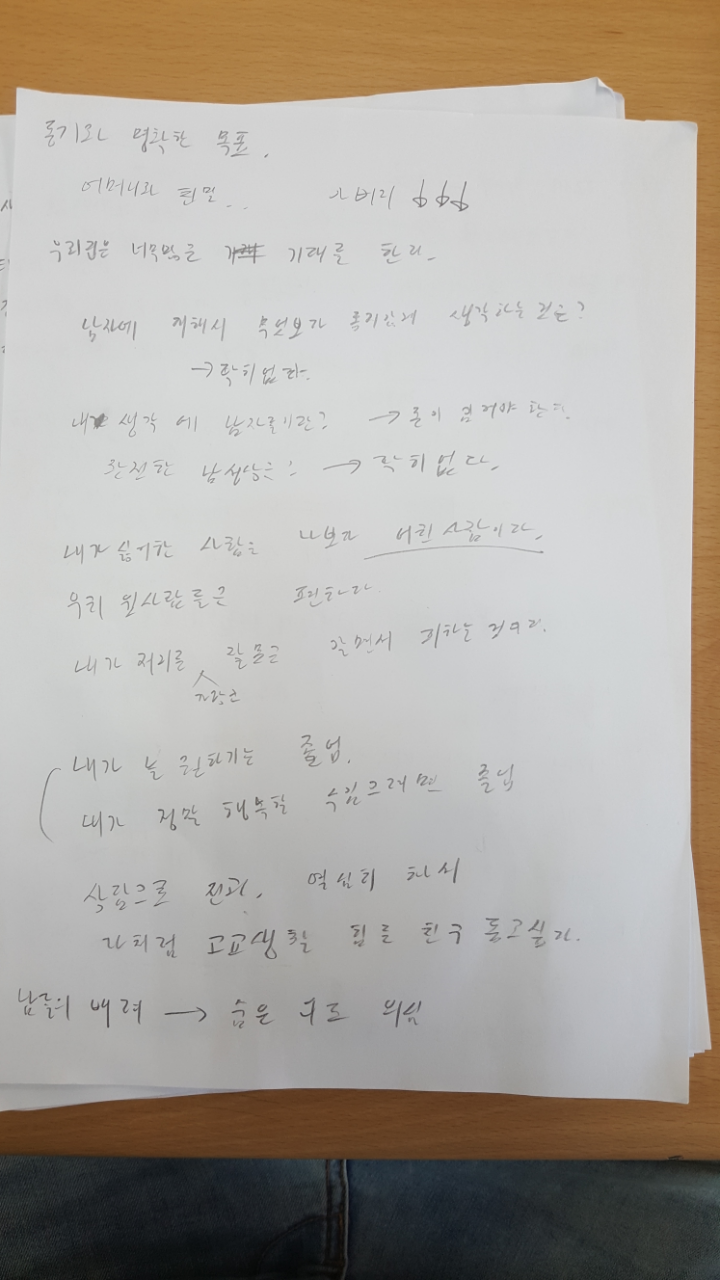 동기와 명확한 목표.
어머니와 편멀... 아버지
우리집은 너무많은 기대를 한다.
남자에 대해서 무엇보다 생각하는 것은?
→ 딱히없다.
내 생각에 남자들이란? → 돈이 많아야 한다.
완전한 남성상은? → 딱히 없다.
내가 싫어한 사람은 나보다 어린사람이다.
우리 윗사람들은 편하다.
내가 저지른 잘못은 피하는 것이다.
내가 늘 원하기는 졸업.
내가 정말 행복할 수있으려면 졸업
상담으로 전과, 열심히 해서
나처럼 고교생활 힘들 친구 돕고싶다.
남들의 배려 → 숨은 의도 의심